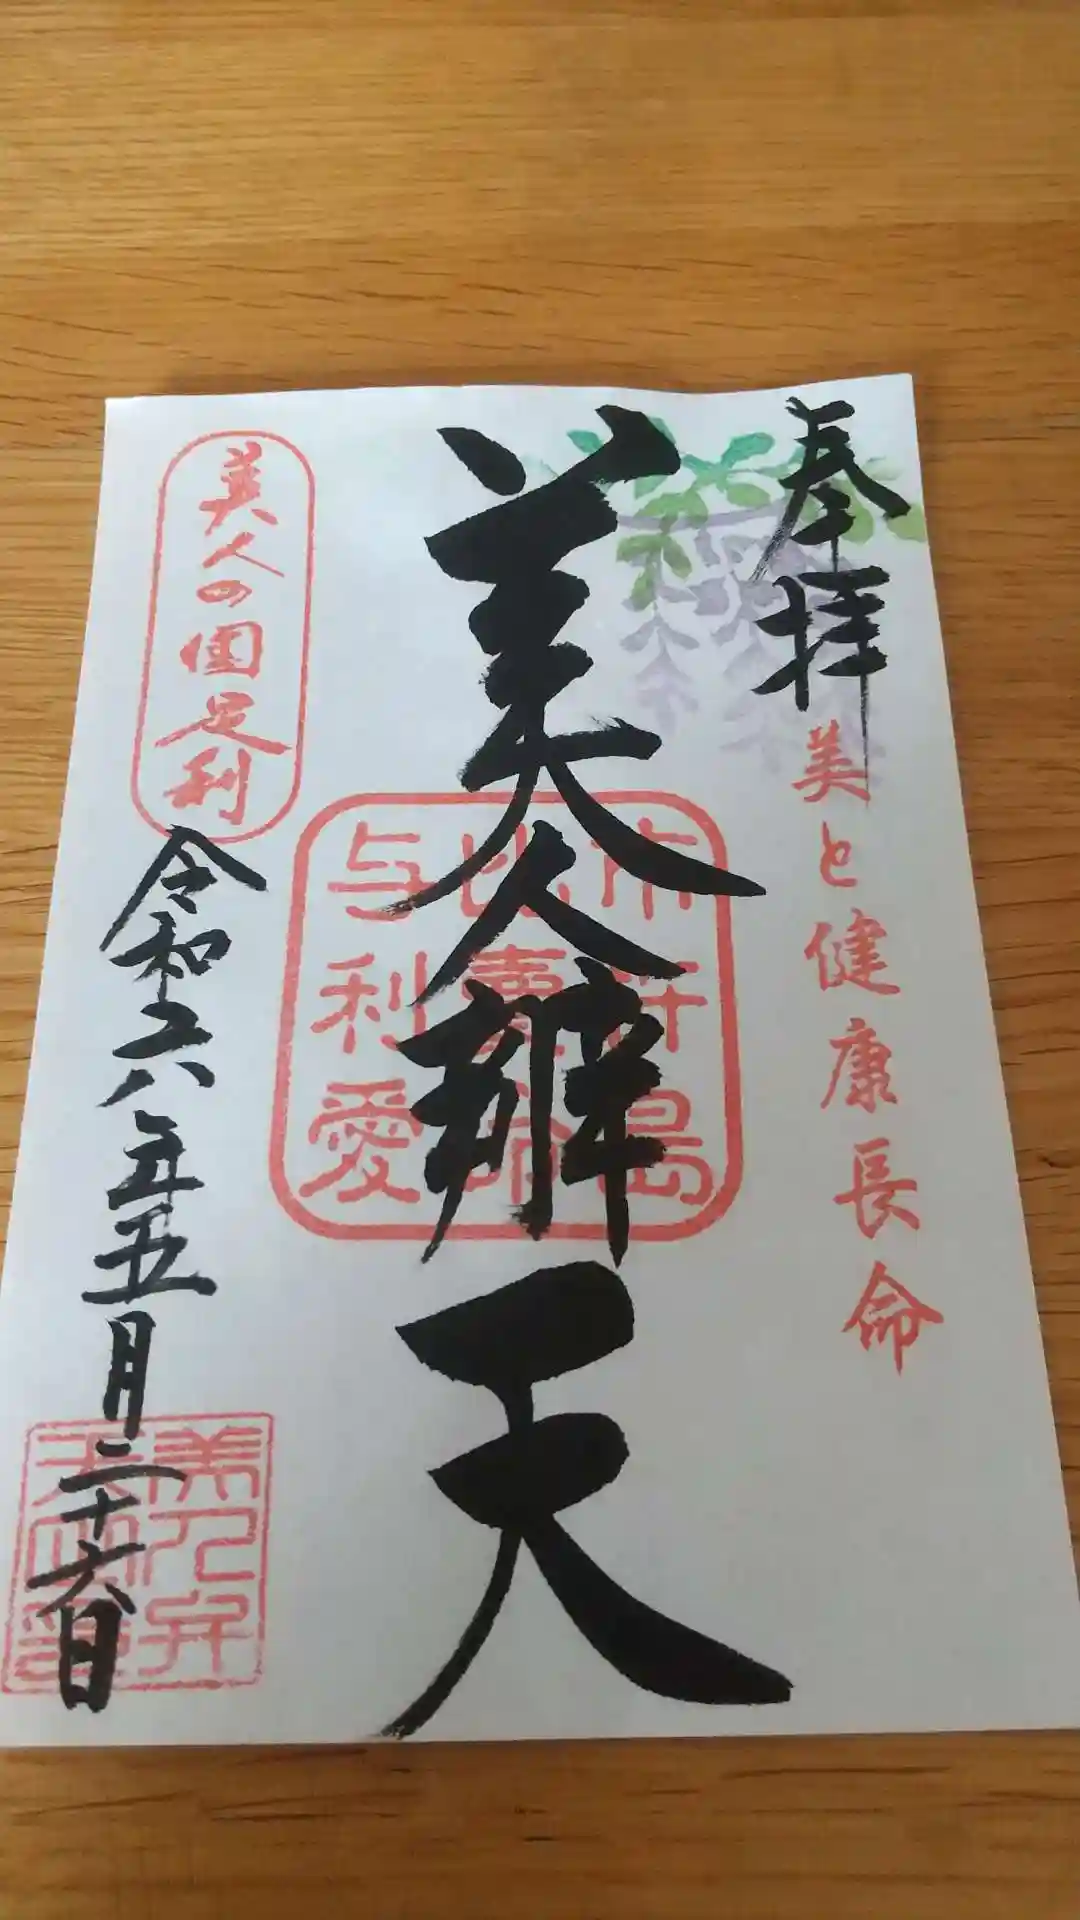 奉拝
美と健康長命
美人辨天
市杵島
比賣命
与利愛
美人の国足利
令和六年五月二十六日
美人弁
天